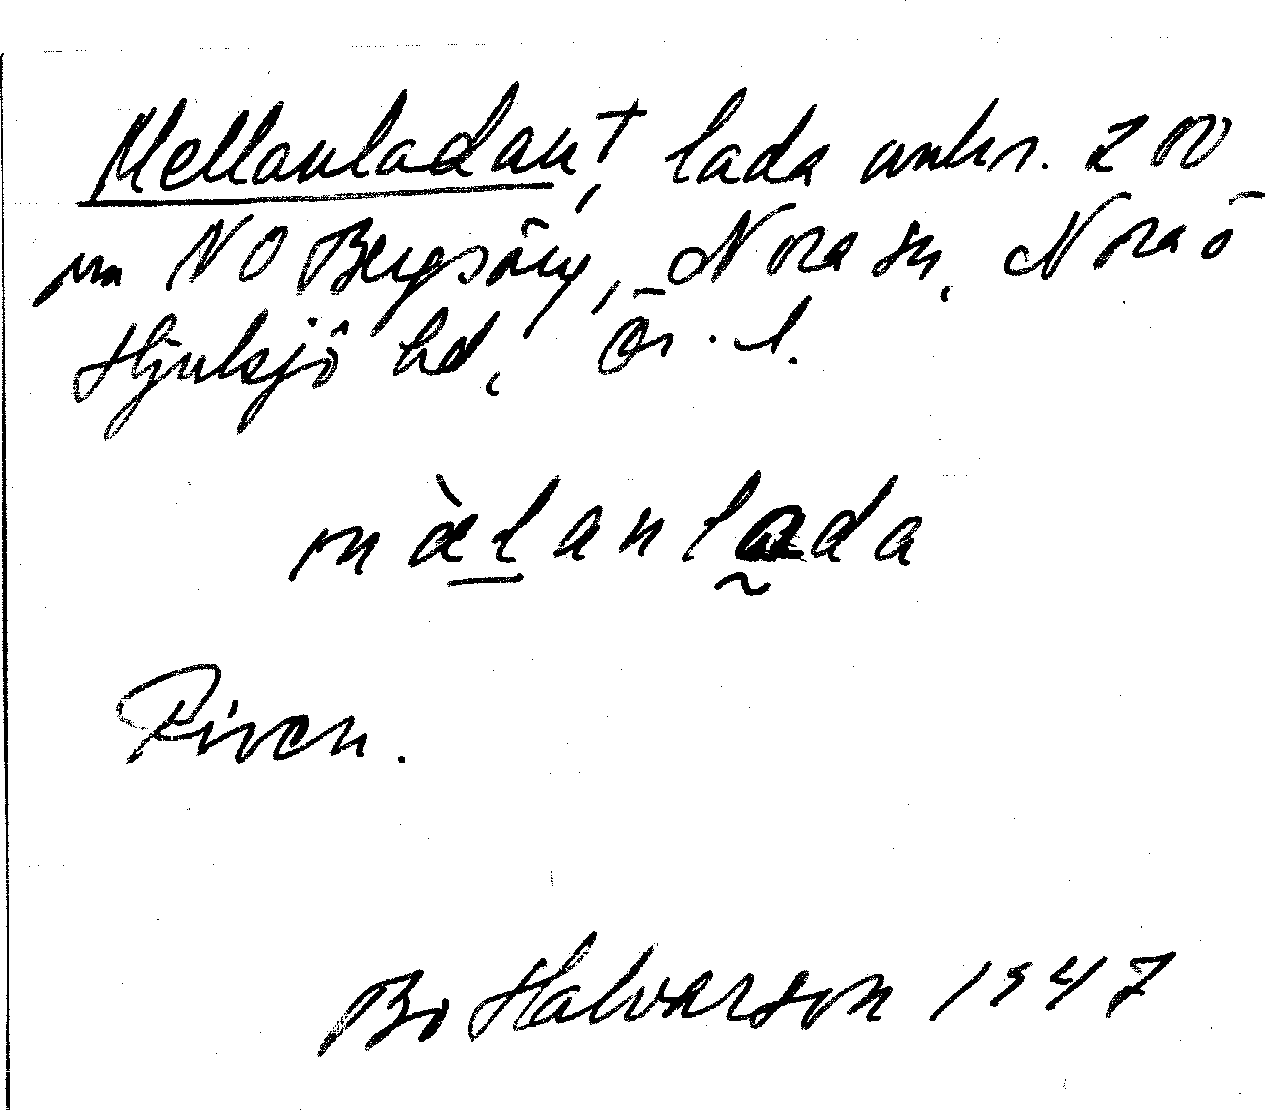 Mellanladan,† lada omkr. 200
m NO Bergsäng, Nora sn, Nora o
Hjulsjö hd, Ör. l.
mὰlanlada
Riven.
Bo Halvarson 1947